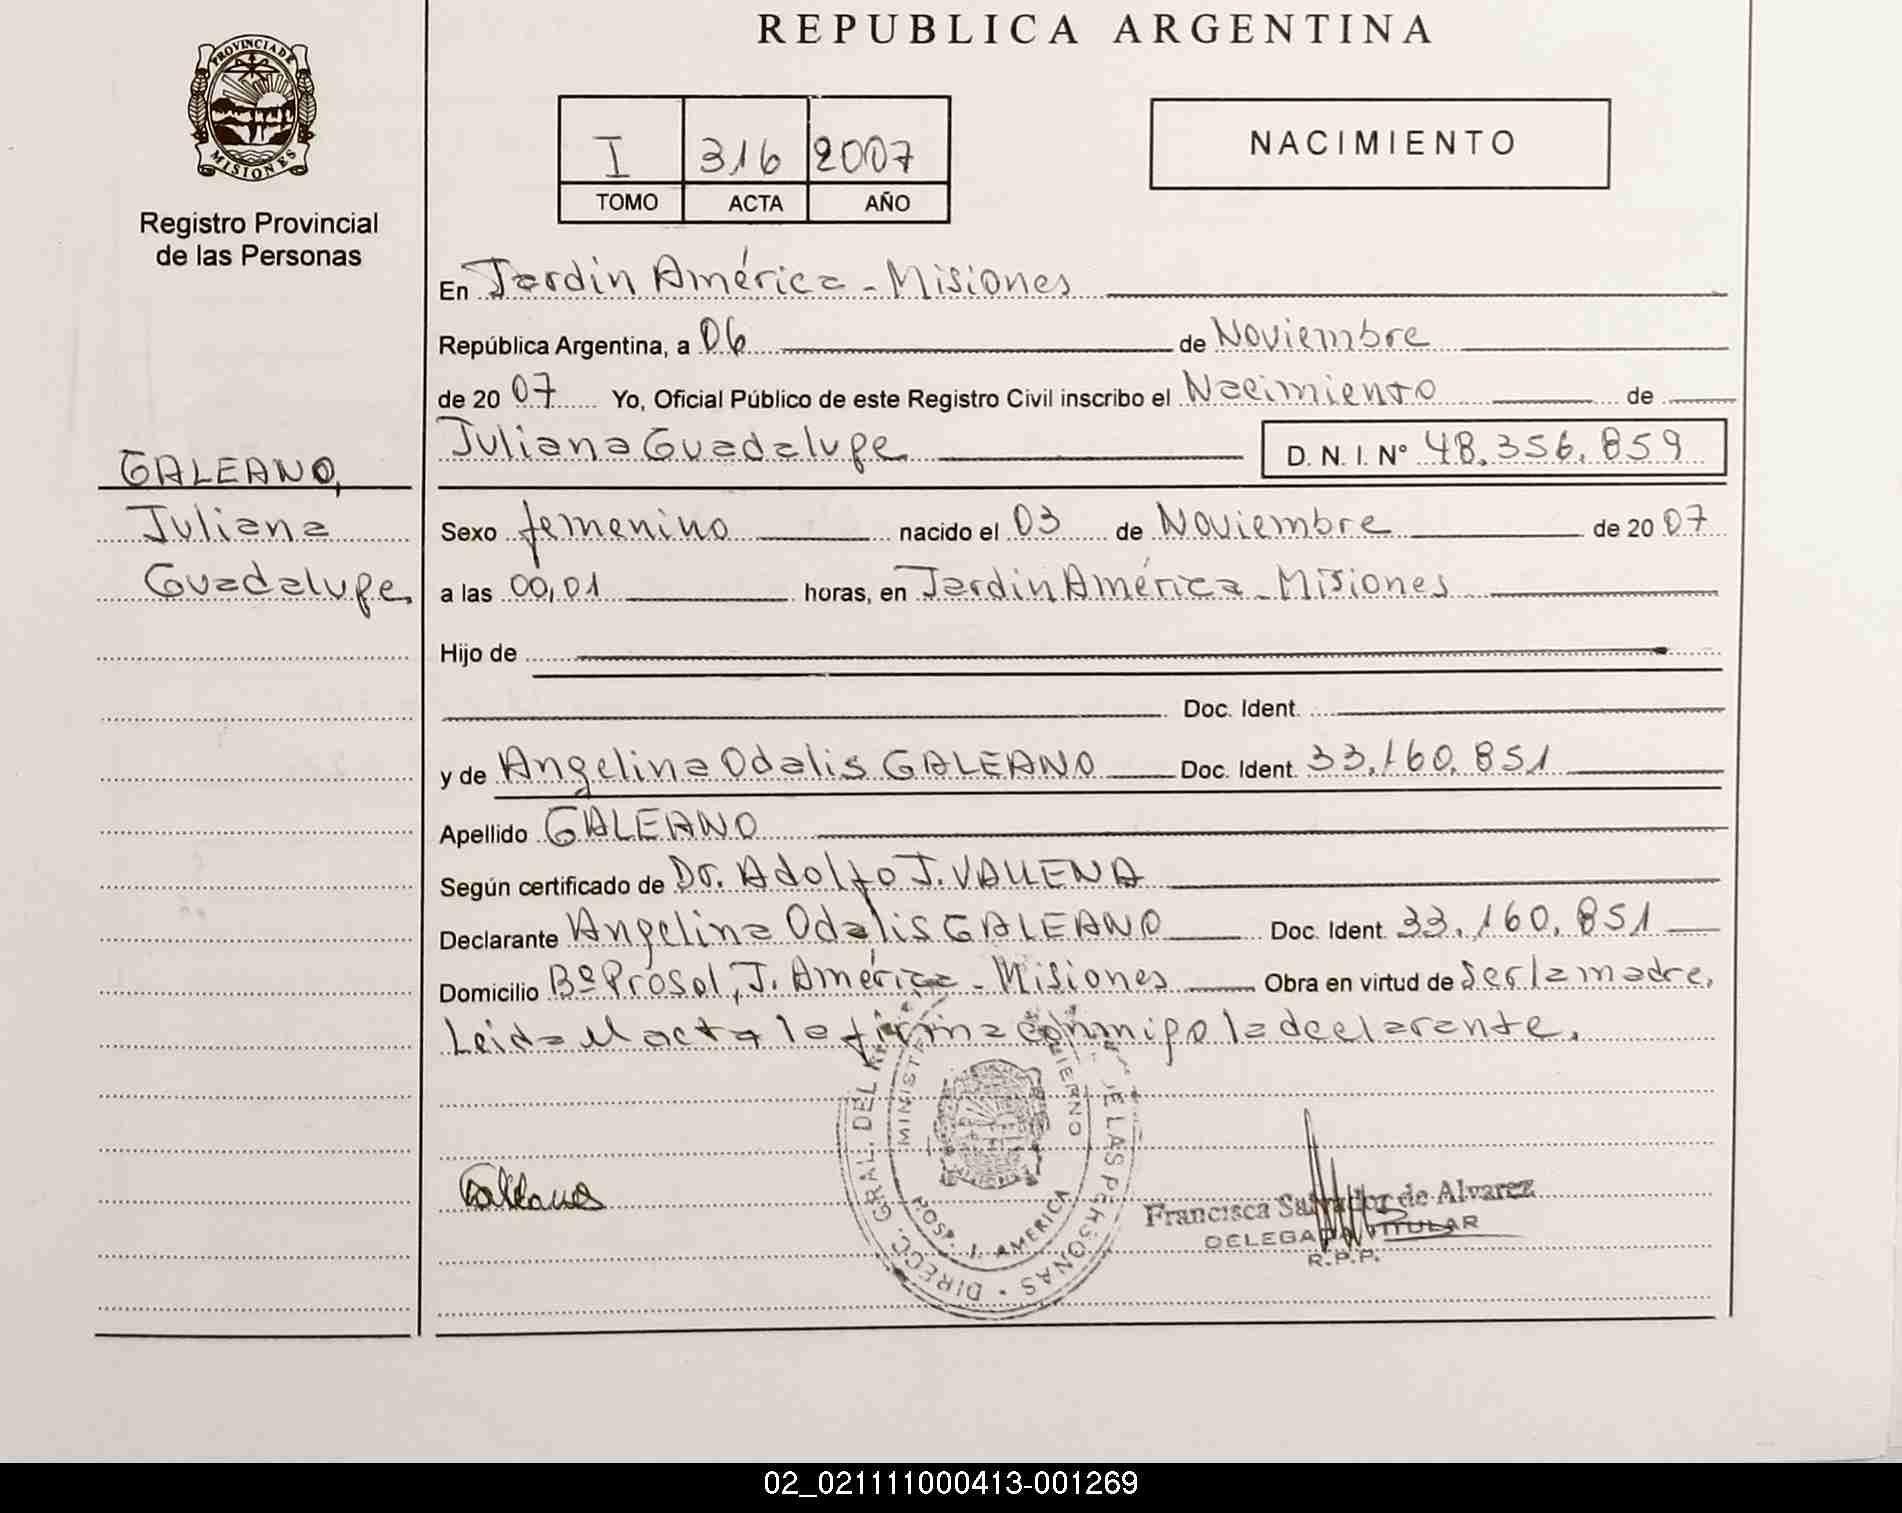 REPUBLICA ARGENTINA
PROVINCIA DE
MISIONES
Registro Provincial
de las Personas
I 316 2007
TOMO ACTA AÑO
NACIMIENTO
En Jardín América - Misiones
República Argentina, a 06 de Noviembre
de 20 07 Yo, Oficial Público de este Registro Civil inscribo el Nacimiento de
Juliana Guadalupe D. N. I. Nº 48.356.859
GALEANO,
Juliana
Guadalupe
Sexo femenino nacido el 03 de Noviembre de 20 07
a las 00,01 horas, en Jardín América - Misiones
Hijo de
Doc. Ident.
y de Angelina Odalis GALEANO Doc. Ident. 33.160.851
Apellido GALEANO
Según certificado de Dr. Adolfo J. VALLENA
Declarante Angelina Odalis GALEANO Doc. Ident. 33.160.851
Domicilio Bº Prosol, J. América - Misiones Obra en virtud de ser la madre.
Leida el acta la firma conmigo la declarante.
DIRECC. GRAL. DEL DE LAS PERSONAS
HOSP. J. AMERICA
Galeano
Francisca Salvador de Alvarez
DELEGADA TITULAR
R.P.P.
02_021111000413-001269